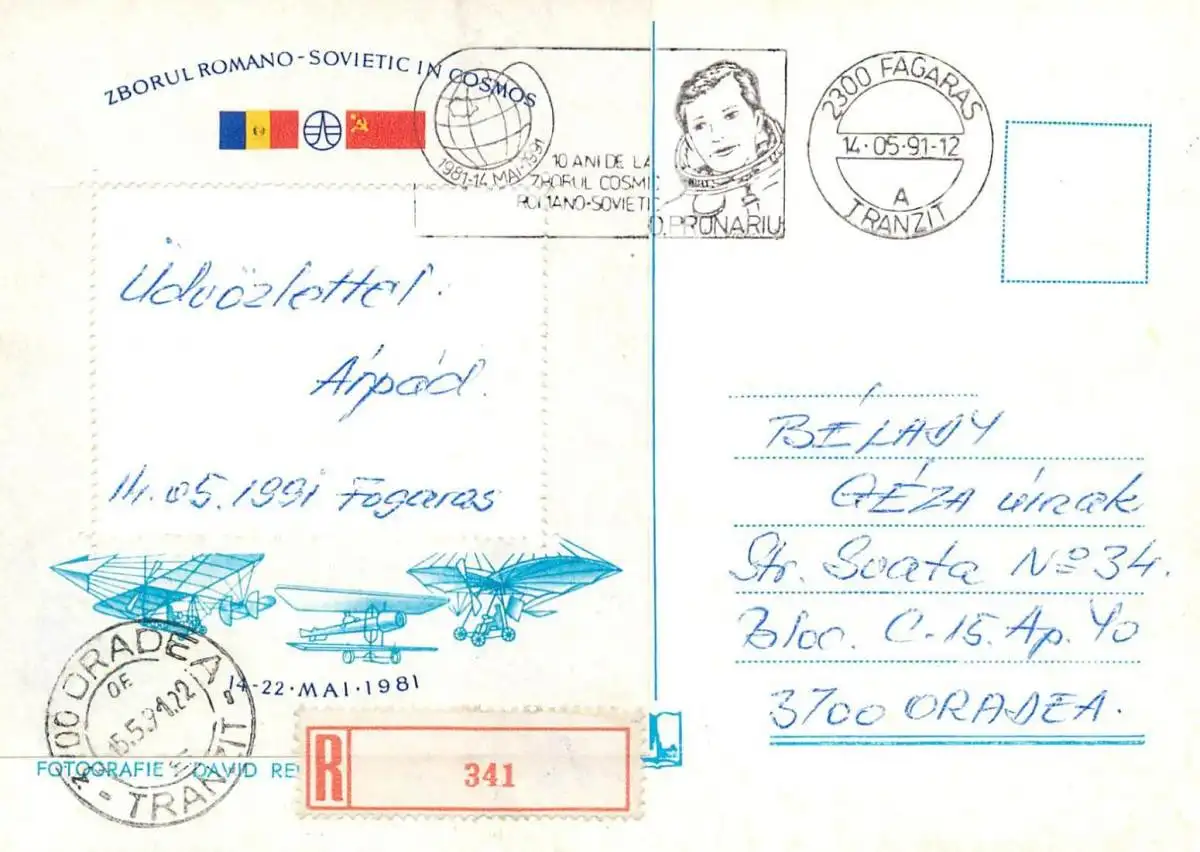 ZBORUL ROMANO-SOVIETIC IN COSMOS
1981-14 MAI-1991
10 ANI DE LA
ZBORUL COSMIC
ROMANO-SOVIETIC
D.PRUNARIU
2300 FAGARAS
14·05·91-12
A
TRANZIT
Üdvözlettel.
Árpád.
14.05.1991 Fogaras
BÉLÁDY
GÉZA úrnak
Str. Soata No 34.
Bloc. C-15. Ap. 40
3700 ORADEA.
14-22·MAI·1981
ORADEA
OF
15.5.91.22
TRANZIT
FOTOGRAFIE DAVID
R 341